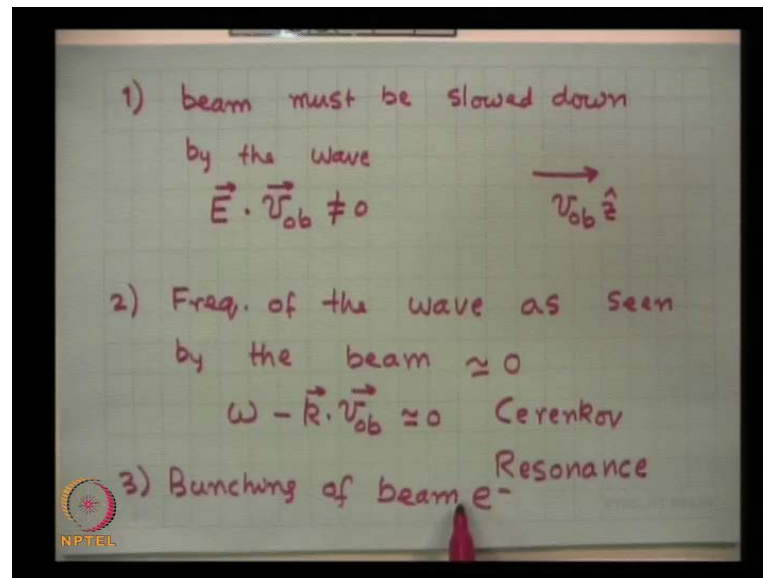 1) beam must be slowed down
by the wave
E⃗ · v⃗ob ≠ 0 vob ẑ
2) Freq. of the wave as seen
by the beam ≃ 0
ω − k⃗ · v⃗ob ≃ 0 Cerenkov
Resonance
3) Bunching of beam e⁻
NPTEL